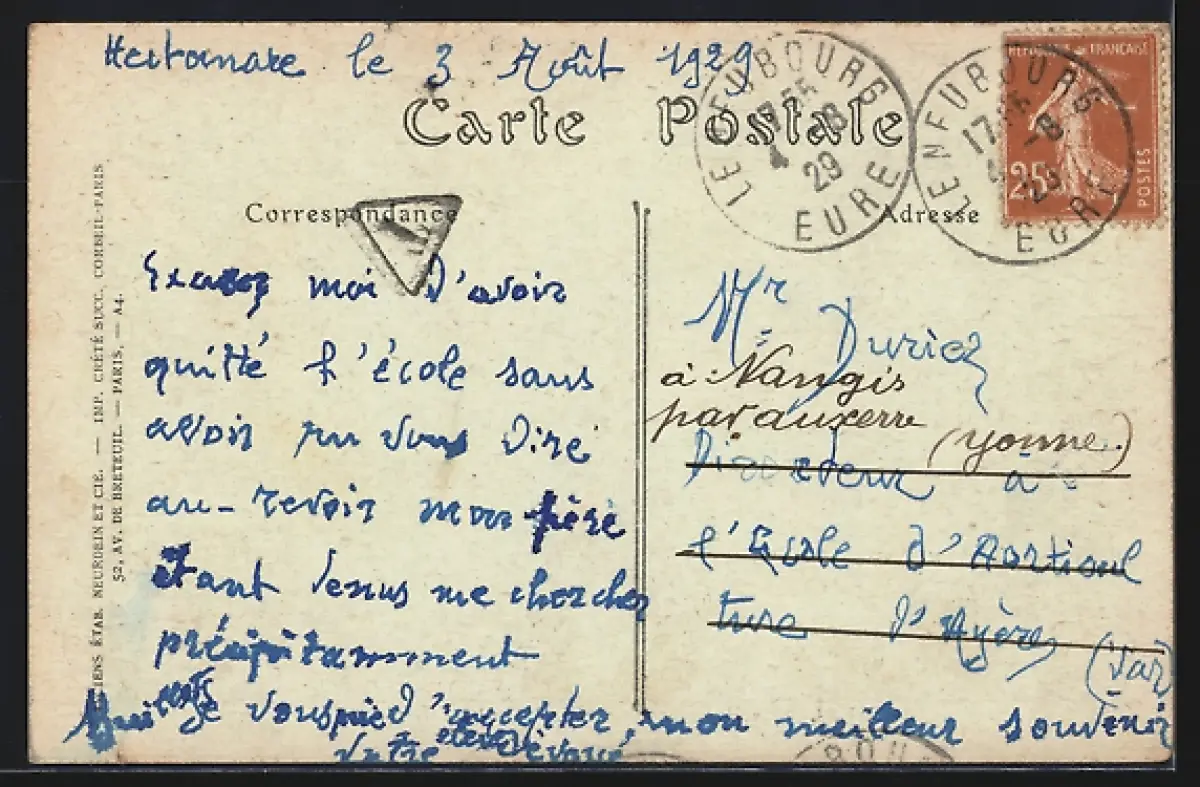 le 3 Août 1929
Carte Postale
LE NEUBOURG
17 55
4 -8
29
EURE
LE NEUBOURG
17
-8
29
EURE
FRANCAISE
25c
POSTES
Correspondance
Adresse
Excusez moi d'avoir
quitté l'école sans
avoir pu vous dire
au-revoir mon père
étant venus me chercher
précipitamment
je vous pried'accepter, mon meilleur souvenir
Votre élève dévoué
Mr Duriez
à Nangis
par auxerre
(yonne.)
Directeur à
l'Ecole d'Horticul
ture d'Hyères
(Var)
IENS ÉTAB. NEURDEIN ET CIE. — IMP. CRÉTÉ SUCC. CORBEIL-PARIS
52, AV. DE BRETEUIL. — PARIS. — A4.